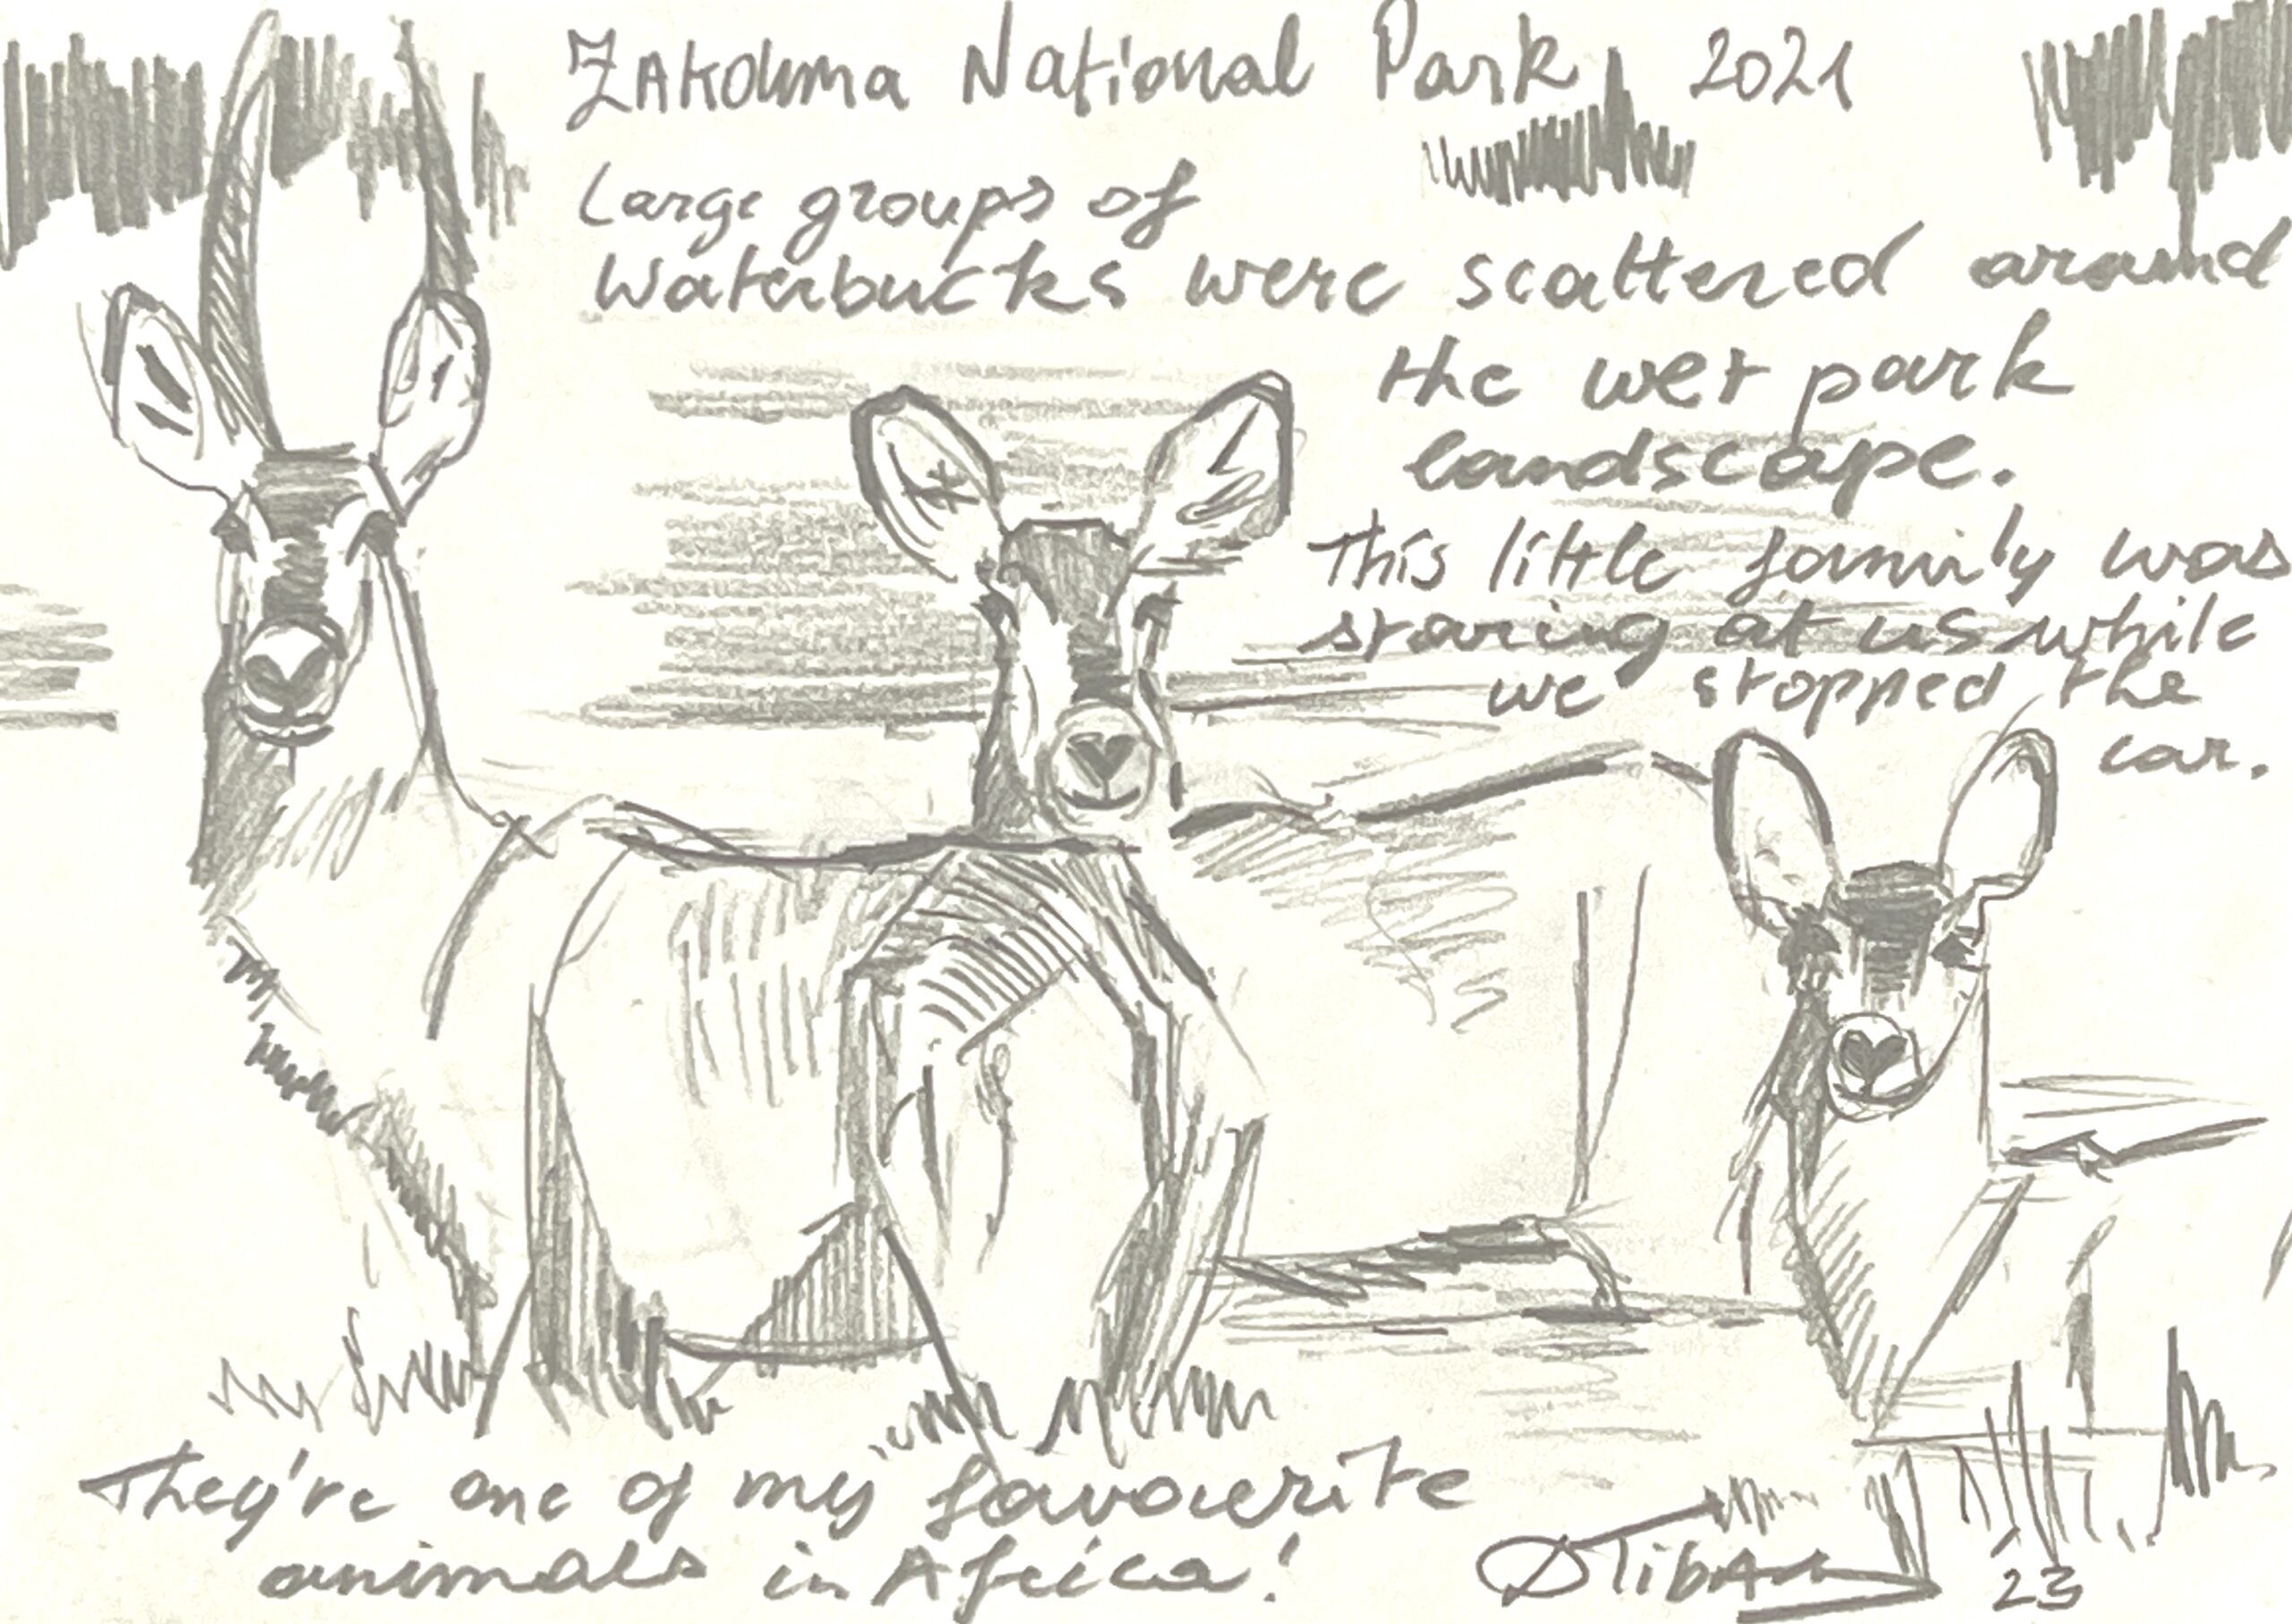 Zakouma National Park 2021
Large groups of
Waterbucks were scattered around
the wet park
landscape.
This little family was
staring at us while
we stopped the
car.
They're one of my favourite
animals in Africa!
23